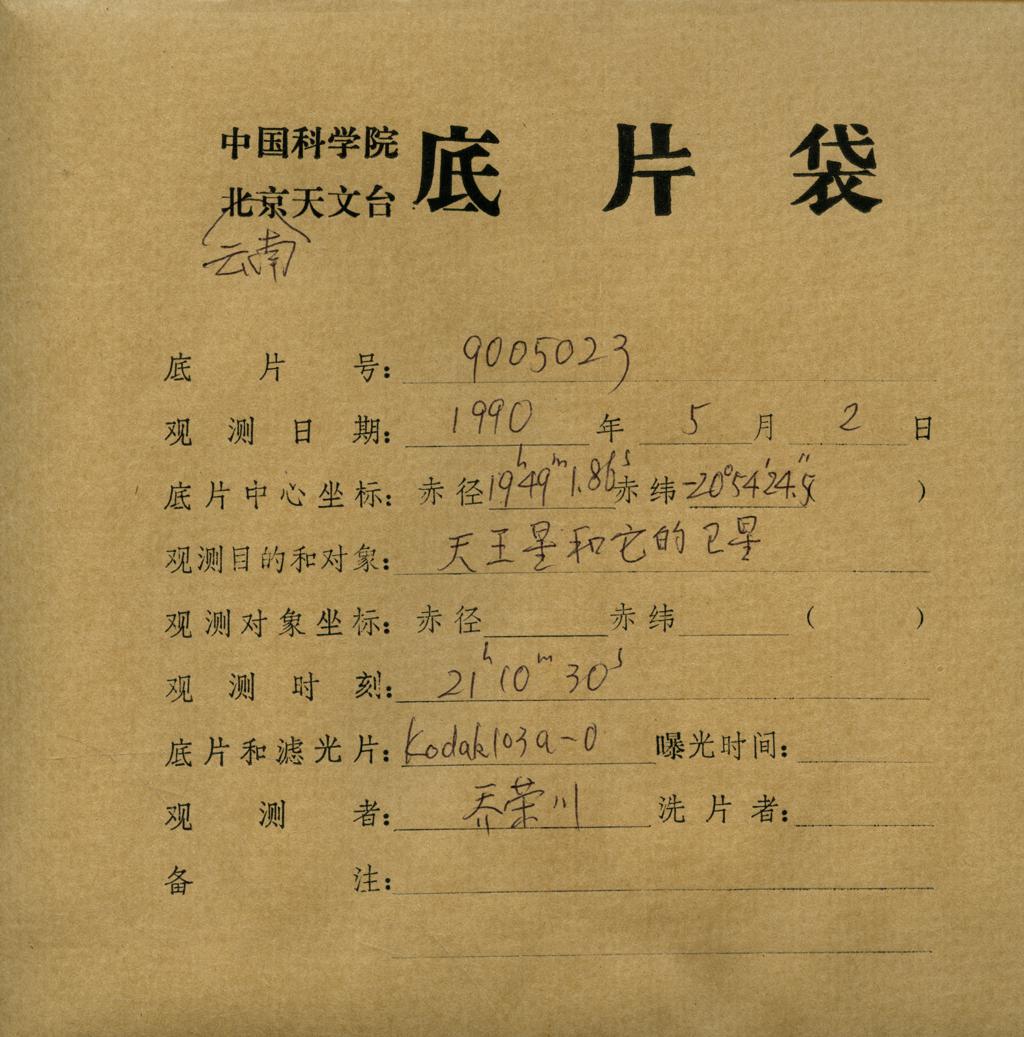 中国科学院
北京天文台 底片袋
云南
底片号: 9005023
观测日期: 1990 年 5 月 2 日
底片中心坐标: 赤径 19h49m1.86s 赤纬 -20°54′24.5″ ( )
观测目的和对象: 天王星和它的卫星
观测对象坐标: 赤径 赤纬 ( )
观测时刻: 21h10m30s
底片和滤光片: Kodak103a-0 曝光时间:
观测者: 乔荣川 洗片者:
备注: